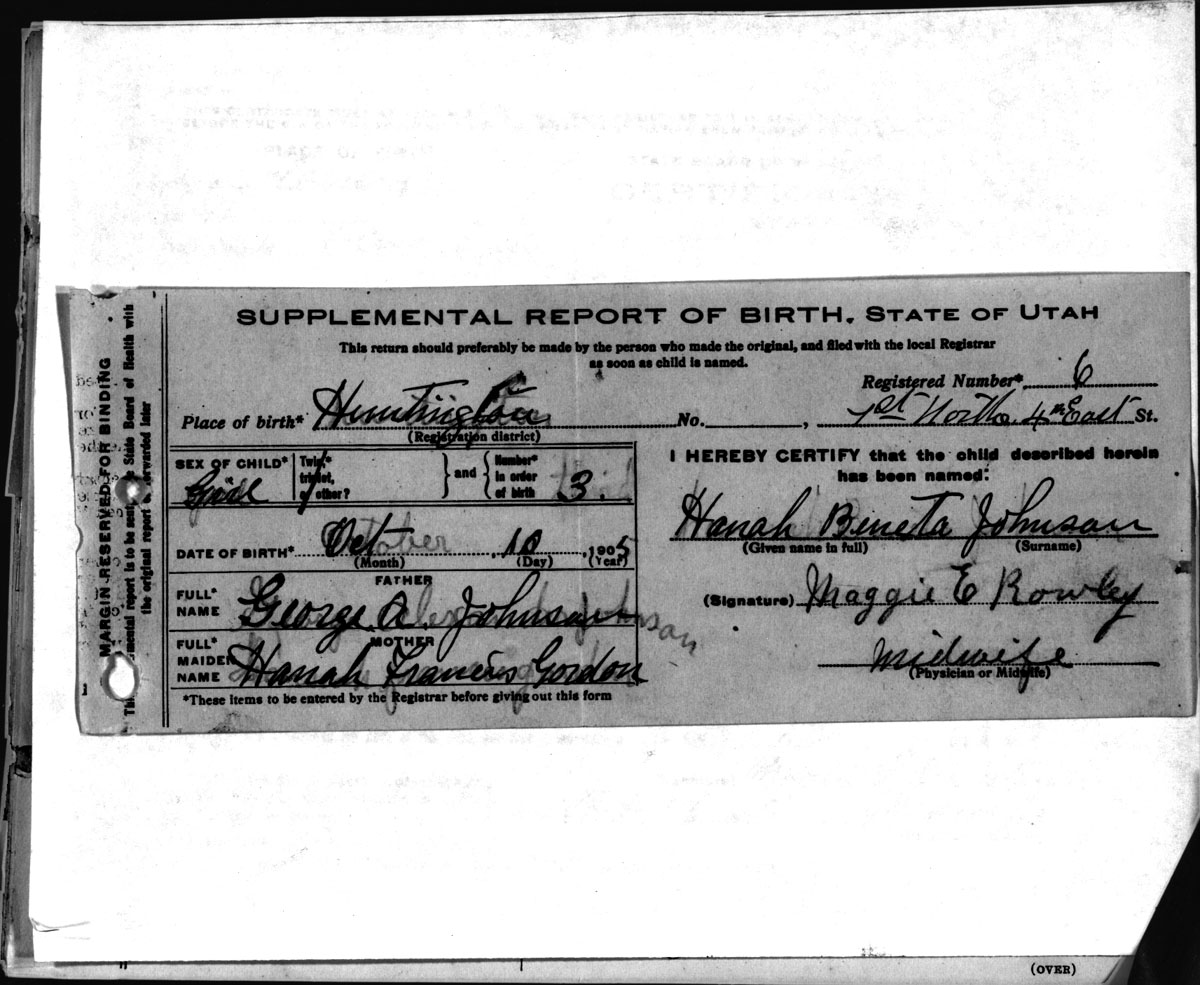 SUPPLEMENTAL REPORT OF BIRTH. STATE OF UTAH
This return should preferably be made by the person who made the original, and filed with the local Registrar
as soon as child is named.
Registered Number* 6
Place of birth* Huntington No. , 1st North 4th East St.
(Registration district)
SEX OF CHILD* Girl
Twin,*
triplet,
or other?
and
Number*
in order
of birth 3.
I HEREBY CERTIFY that the child described herein
has been named:
Hanah Beneta Johnson
(Given name in full) (Surname)
DATE OF BIRTH* October 10, 1905
(Month) (Day) (Year)
FATHER
FULL*
NAME George A. Johnson
(Signature) Maggie E Rowley
MOTHER
FULL*
MAIDEN
NAME Hanah Francis Gordon
Midwife
(Physician or Midwife)
*These items to be entered by the Registrar before giving out this form
MARGIN RESERVED FOR BINDING
State Board of Health with
the original report forwarded later
(OVER)